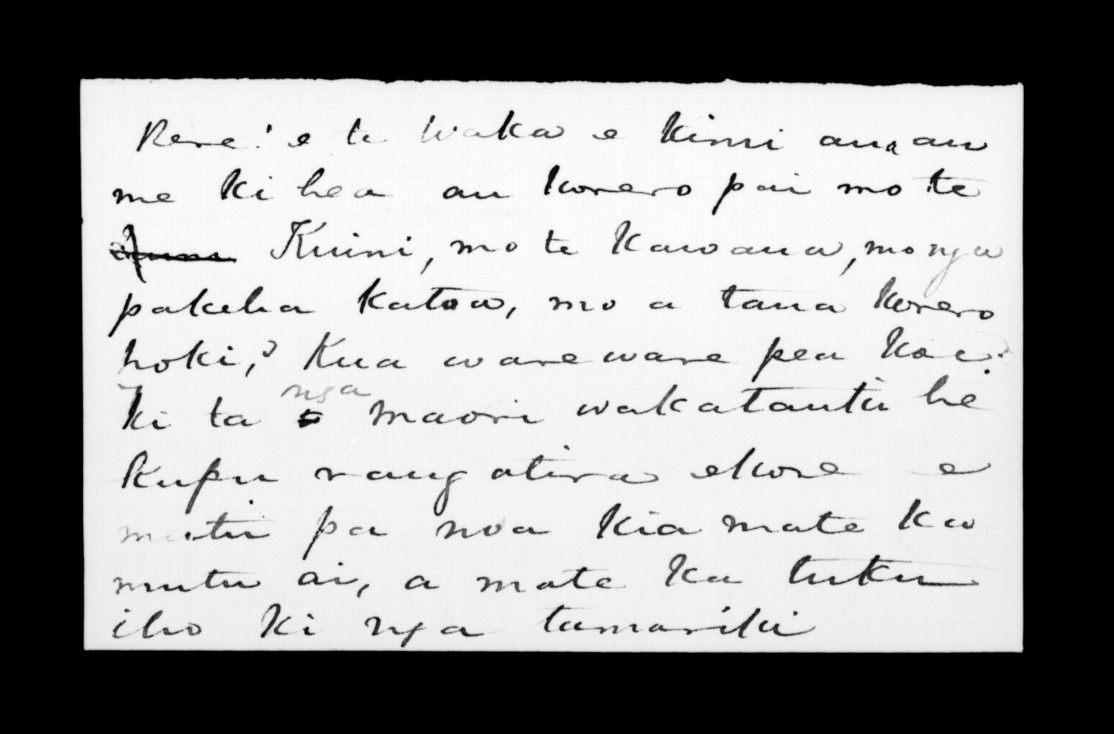 Rere! e te Waka e kimi ana au
me ki hea au korero pai mo te
Kuini, mo te Kawana, mo nga
pakeha katoa, mo a tana korero
hoki,? Kua wareware pea koe?
ki ta nga maori wakatauki he
kupu rangatira ekore e
mutu pa noa kia mate ka
mutu ai, a mate ka tuku
iho ki nga tamariki